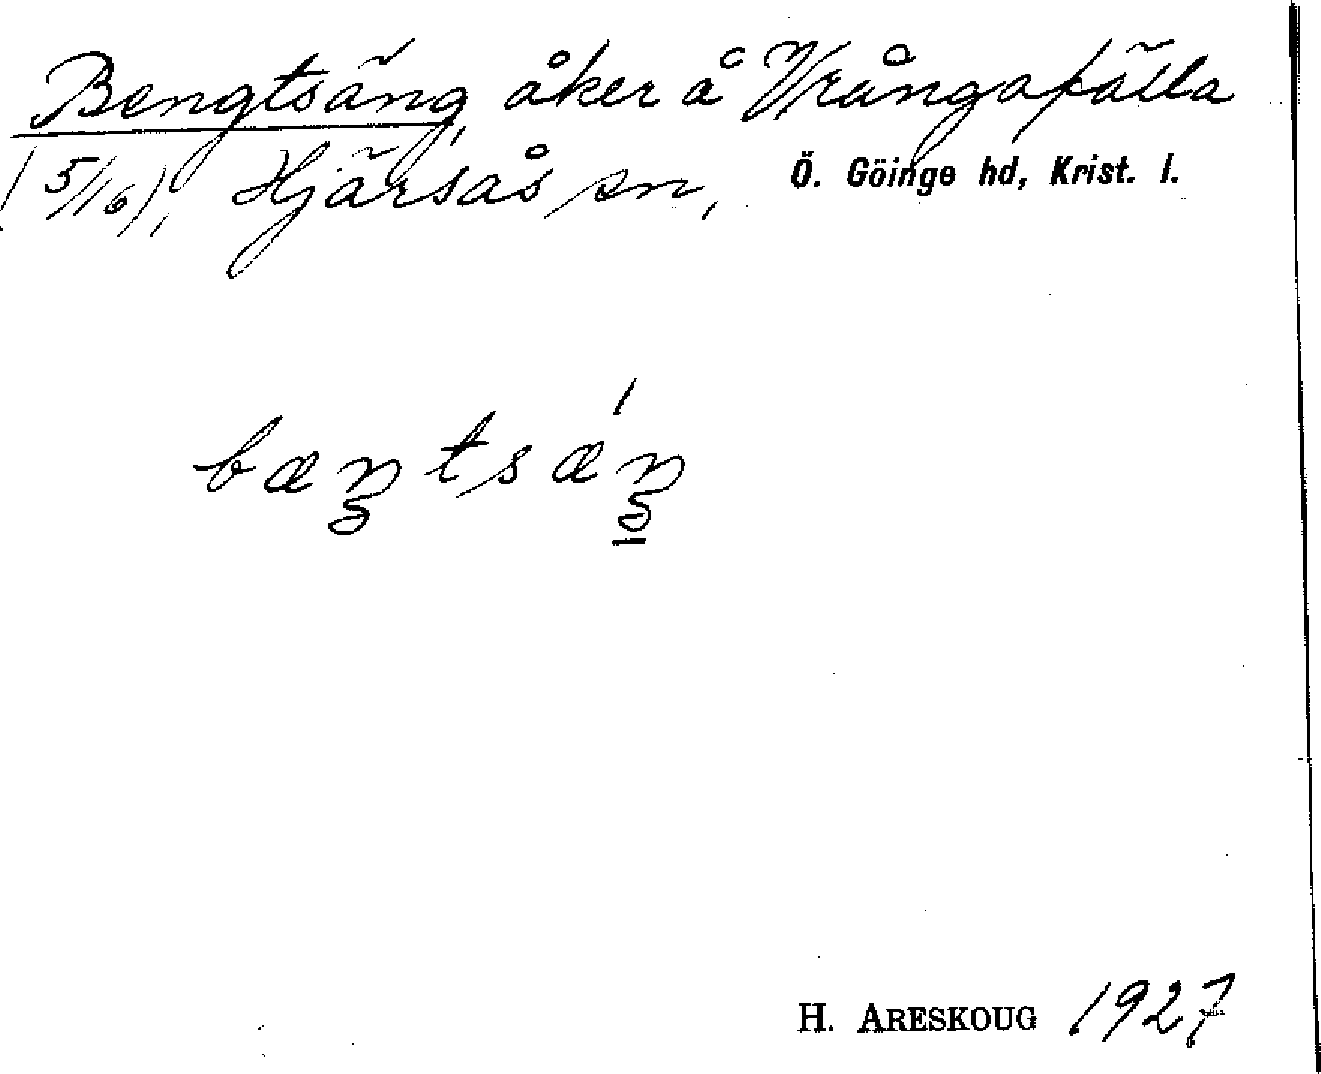 Bengtsäng, åker å Vrångafälla
(5/16), Hjärsås sn, Ö. Göinge hd, Krist. l.
bæŋtsǽŋ
H. ARESKOUG 1927